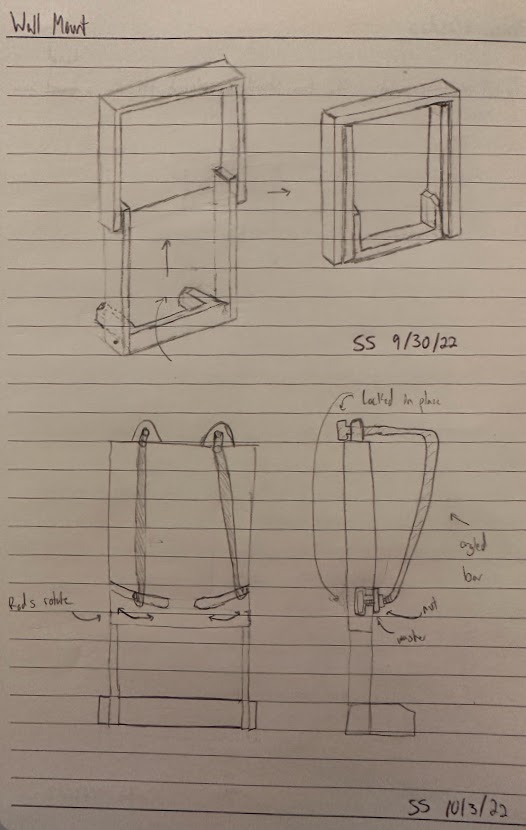 Wall Mount
SS 9/30/22
Locked in place
angled
bar
Rods rotate
nut
washer
SS 10/3/22